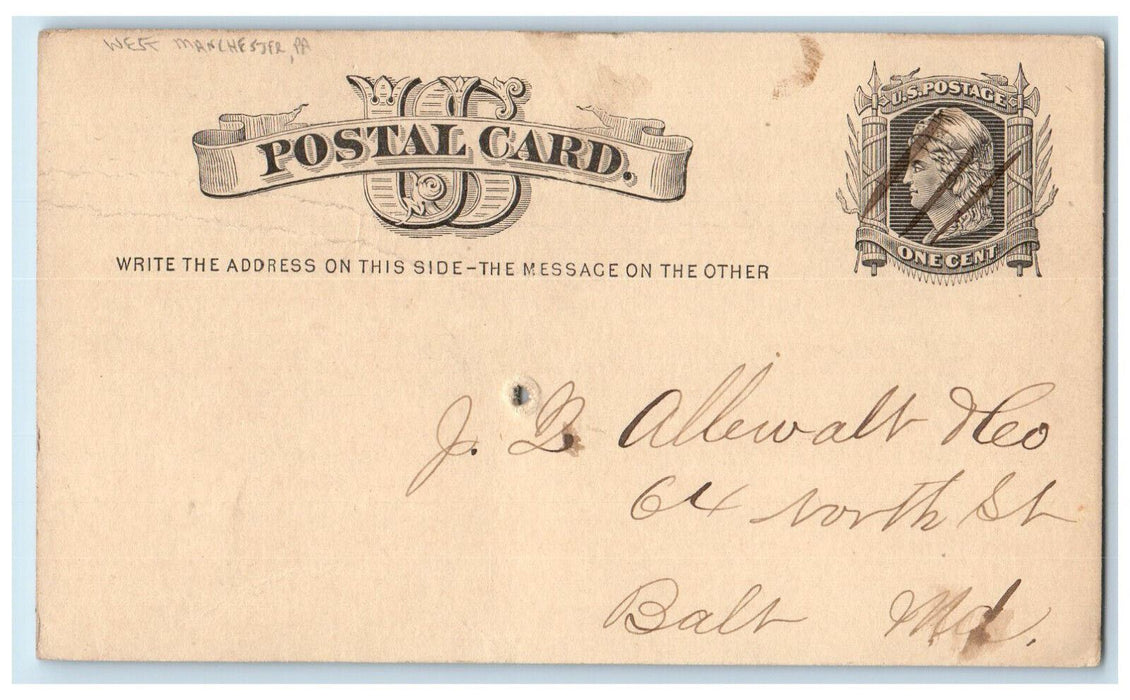 WEST MANCHESTER, PA
US
POSTAL CARD.
U.S. POSTAGE
ONE CENT
WRITE THE ADDRESS ON THIS SIDE-THE MESSAGE ON THE OTHER
J. B. Allewalt & Co
64 North St
Balt Md.